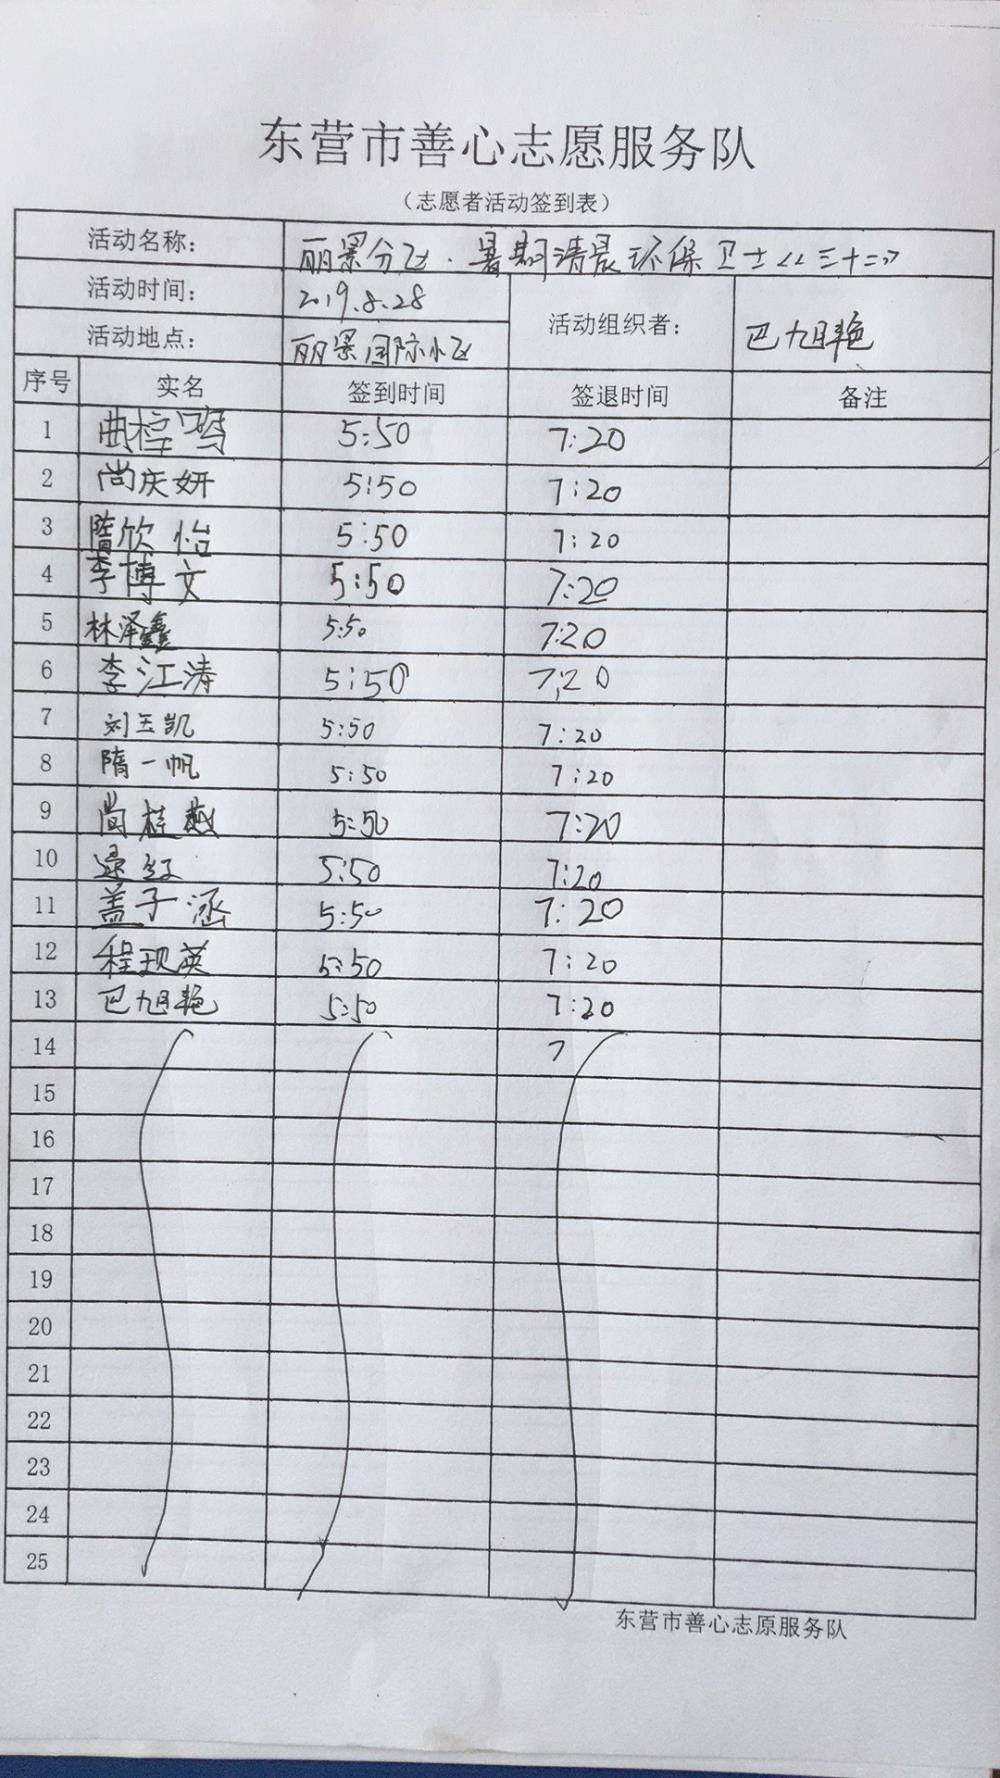 东营市善心志愿服务队
（志愿者活动签到表）
活动名称： 丽景分飞·暑期清晨环保卫士《三十二》
活动时间： 2019.8.28 活动组织者： 巴旭艳
活动地点： 丽景国际小区
序号 实名 签到时间 签退时间 备注
1 曲梓鸣 5:50 7:20
2 尚庆妍 5:50 7:20
3 隋欣怡 5:50 7:20
4 李博文 5:50 7:20
5 林泽鑫 5:50 7:20
6 李江涛 5:50 7:20
7 刘玉凯 5:50 7:20
8 隋一帆 5:50 7:20
9 尚桂 5:50 7:20
10 红 5:50 7:20
11 盖子涵 5:50 7:20
12 程现英 5:50 7:20
13 巴旭艳 5:50 7:20
14 7
15
16
17
18
19
20
21
22
23
24
25
东营市善心志原服务队